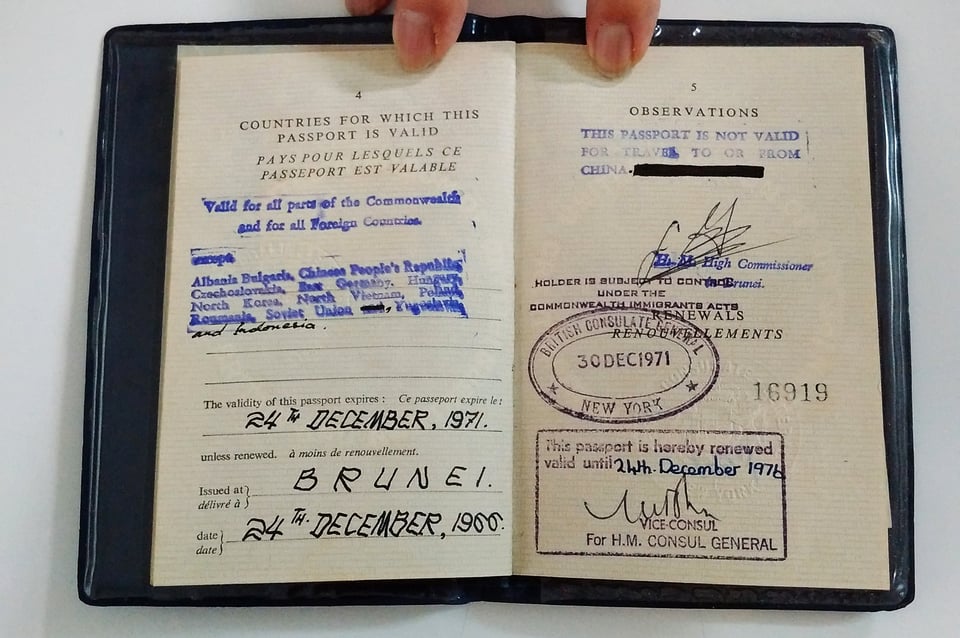 4
COUNTRIES FOR WHICH THIS
PASSPORT IS VALID
PAYS POUR LESQUELS CE
PASSEPORT EST VALABLE
Valid for all parts of the Commonwealth
and for all Foreign Countries.
europe
Albania Bulgaria, Chinese People's Republic
Czechoslovakia, East Germany, Hungary,
North Korea, North Vietnam, Poland,
Roumania, Soviet Union , Yugoslavia
and Indonesia.
The validity of this passport expires : Ce passeport expire le :
24TH DECEMBER, 1971.
unless renewed. à moins de renouvellement.
Issued at
délivré à
BRUNEI.
date
date
24TH DECEMBER, 1966.
5
OBSERVATIONS
THIS PASSPORT IS NOT VALID
FOR TRAVEL TO OR FROM
CHINA.
H. M. High Commissioner
Brunei.
HOLDER IS SUBJECT TO CONTROL
UNDER THE
COMMONWEALTH IMMIGRANTS ACTS
RENEWALS
RENOUVELLEMENTS
BRITISH CONSULATE GENERAL
30 DEC 1971
NEW YORK
16919
This passport is hereby renewed
valid until 24th. December 1976
VICE-CONSUL
For H.M. CONSUL GENERAL